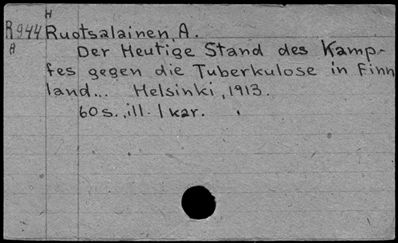 H
R944 Ruotsalainen, A.
A
Der Heutige Stand des Kamp-
fes gegen die Tuberkulose in Finn
land... Helsinki, 1913.
60 s., ill. 1 kar.